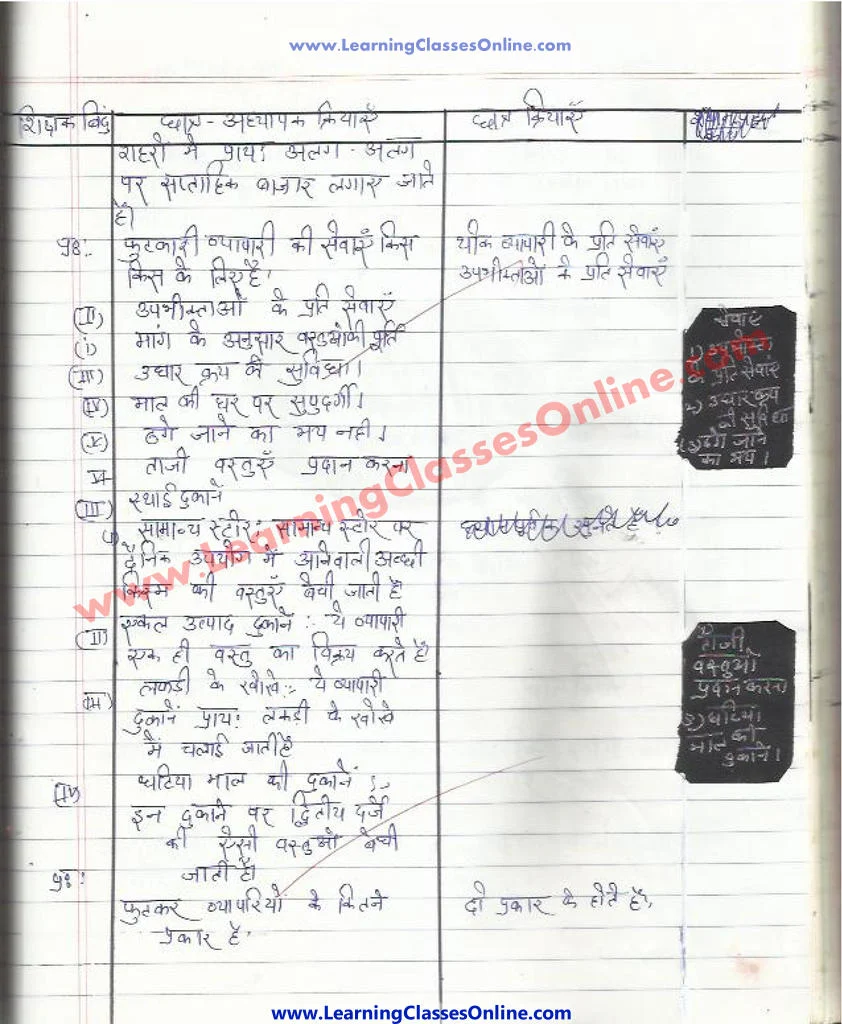 www.LearningClassesOnline.com
शिक्षक बिंदु छात्र - अध्यापक क्रियाएँ छात्र क्रियाएँ
शहरो मे प्रायः अलग - अलग
पर साप्ताहिक बाजार लगाए जाते
है।
प्रश्न: फुटकारी व्यापारी की सेवाएँ किस
किस के लिए है,
थोक व्यापारी के प्रति सेवाएं
उपभोक्ताओं के प्रति सेवाएँ
(II) उपभोक्ताओं के प्रति सेवाएँ
(i) मांग के अनुसार वस्तुओकी पूर्ति
(III) उधार क्रय की सुविधा।
(IV) माल की घर पर सुपुदर्गी।
(V) ठगे जाने का भय नही।
VI ताजी वस्तुएँ प्रदान करना
(III) स्थाई दुकाने
सामान्य स्टोर: सामान्य स्टोर पर
दैनिक उपयोग में आनेवाली अच्छी
किस्म की वस्तुएँ बेची जाती है।
(II) एकल उत्पाद दुकाने :- ये व्यापारी
एक ही वस्तु का विक्रय करते है।
(III) लकडी के खोखे:- ये व्यापारी
दुकाने प्रायः लकडी के खोखे
में चलाई जाती है
(IV) घटिया माल की दुकानें :-
इन दुकाने पर द्वितीय दर्जे
की ऐसी वस्तुओ बेची
जाती है।
प्रश्न: फुटकर व्यापारियों के कितने
प्रकार है,
दो प्रकार के होते है,
सेवाएं
1) उपभोक्ता
के प्रति सेवाएं
2) उधार क्रय
की सुविधा
(3) ठगे जाने
का भय।
ताजी
वस्तुओ
प्रदान करना
5) घटिया
माल की
दुकाने।
www.LearningClassesOnline.com
www.LearningClassesOnline.com